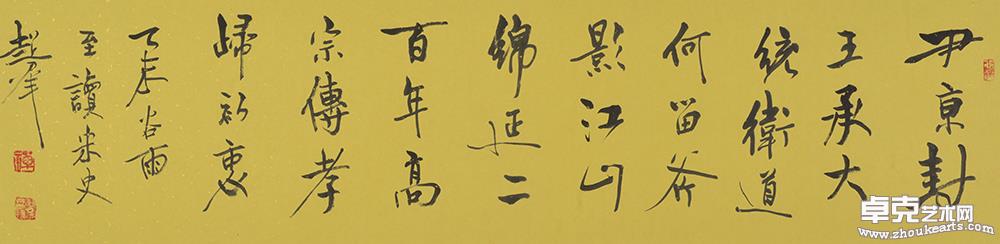 尹京封
王承大
统衛道
何留斧
影江山
錦延二
百年高
宗傳孝
歸初衷
谷雨
讀宋史
卓克艺术网
www.zhoukearts.com